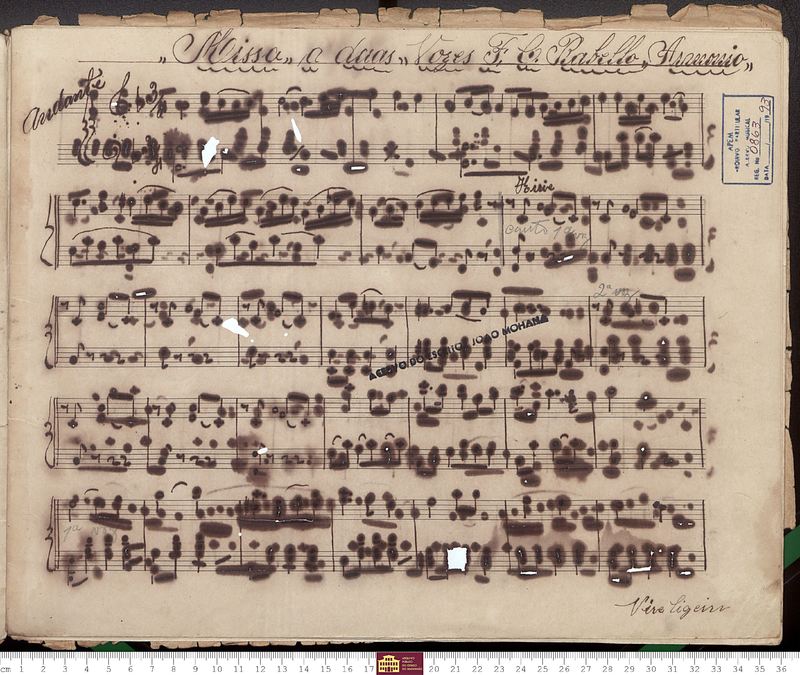 "Missa" a duas "Vozes F. C. Rabello, Armonio"
Andante
APEM
ACERV. MUSICAL
REG. No 0863/93
DATA
Kirie
canto 1ª voz
2ª voz
ACERVO DO ESCRITOR JOÃO MOHANA
1ª voz
Vire Ligeiro
cm 1 2 3 4 5 6 7 8 9 10 11 12 13 14 15 16 17 20 21 22 23 24 25 26 27 28 29 30 31 32 33 34 35 36